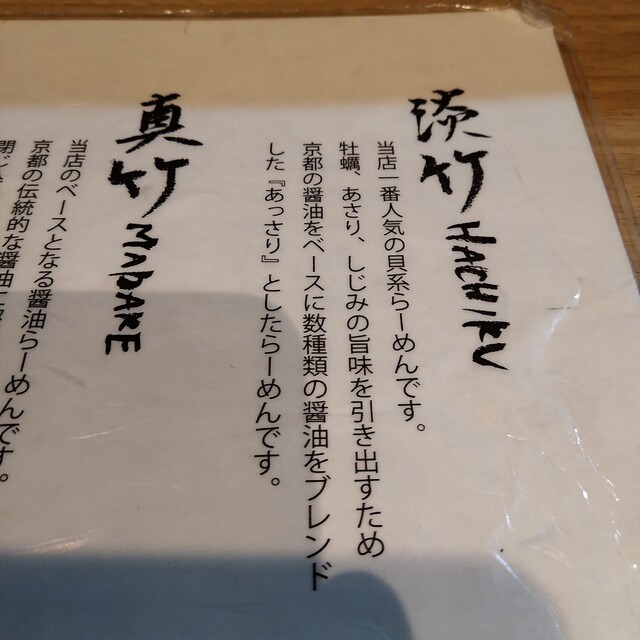 淡竹 HACHIKU
当店一番人気の貝系らーめんです。
牡蠣、あさり、しじみの旨味を引き出すため
京都の醤油をベースに数種類の醤油をブレンド
した『あっさり』としたらーめんです。
真竹 MADAKE
当店のベースとなる醤油らーめんです。
京都の伝統的な醤油に